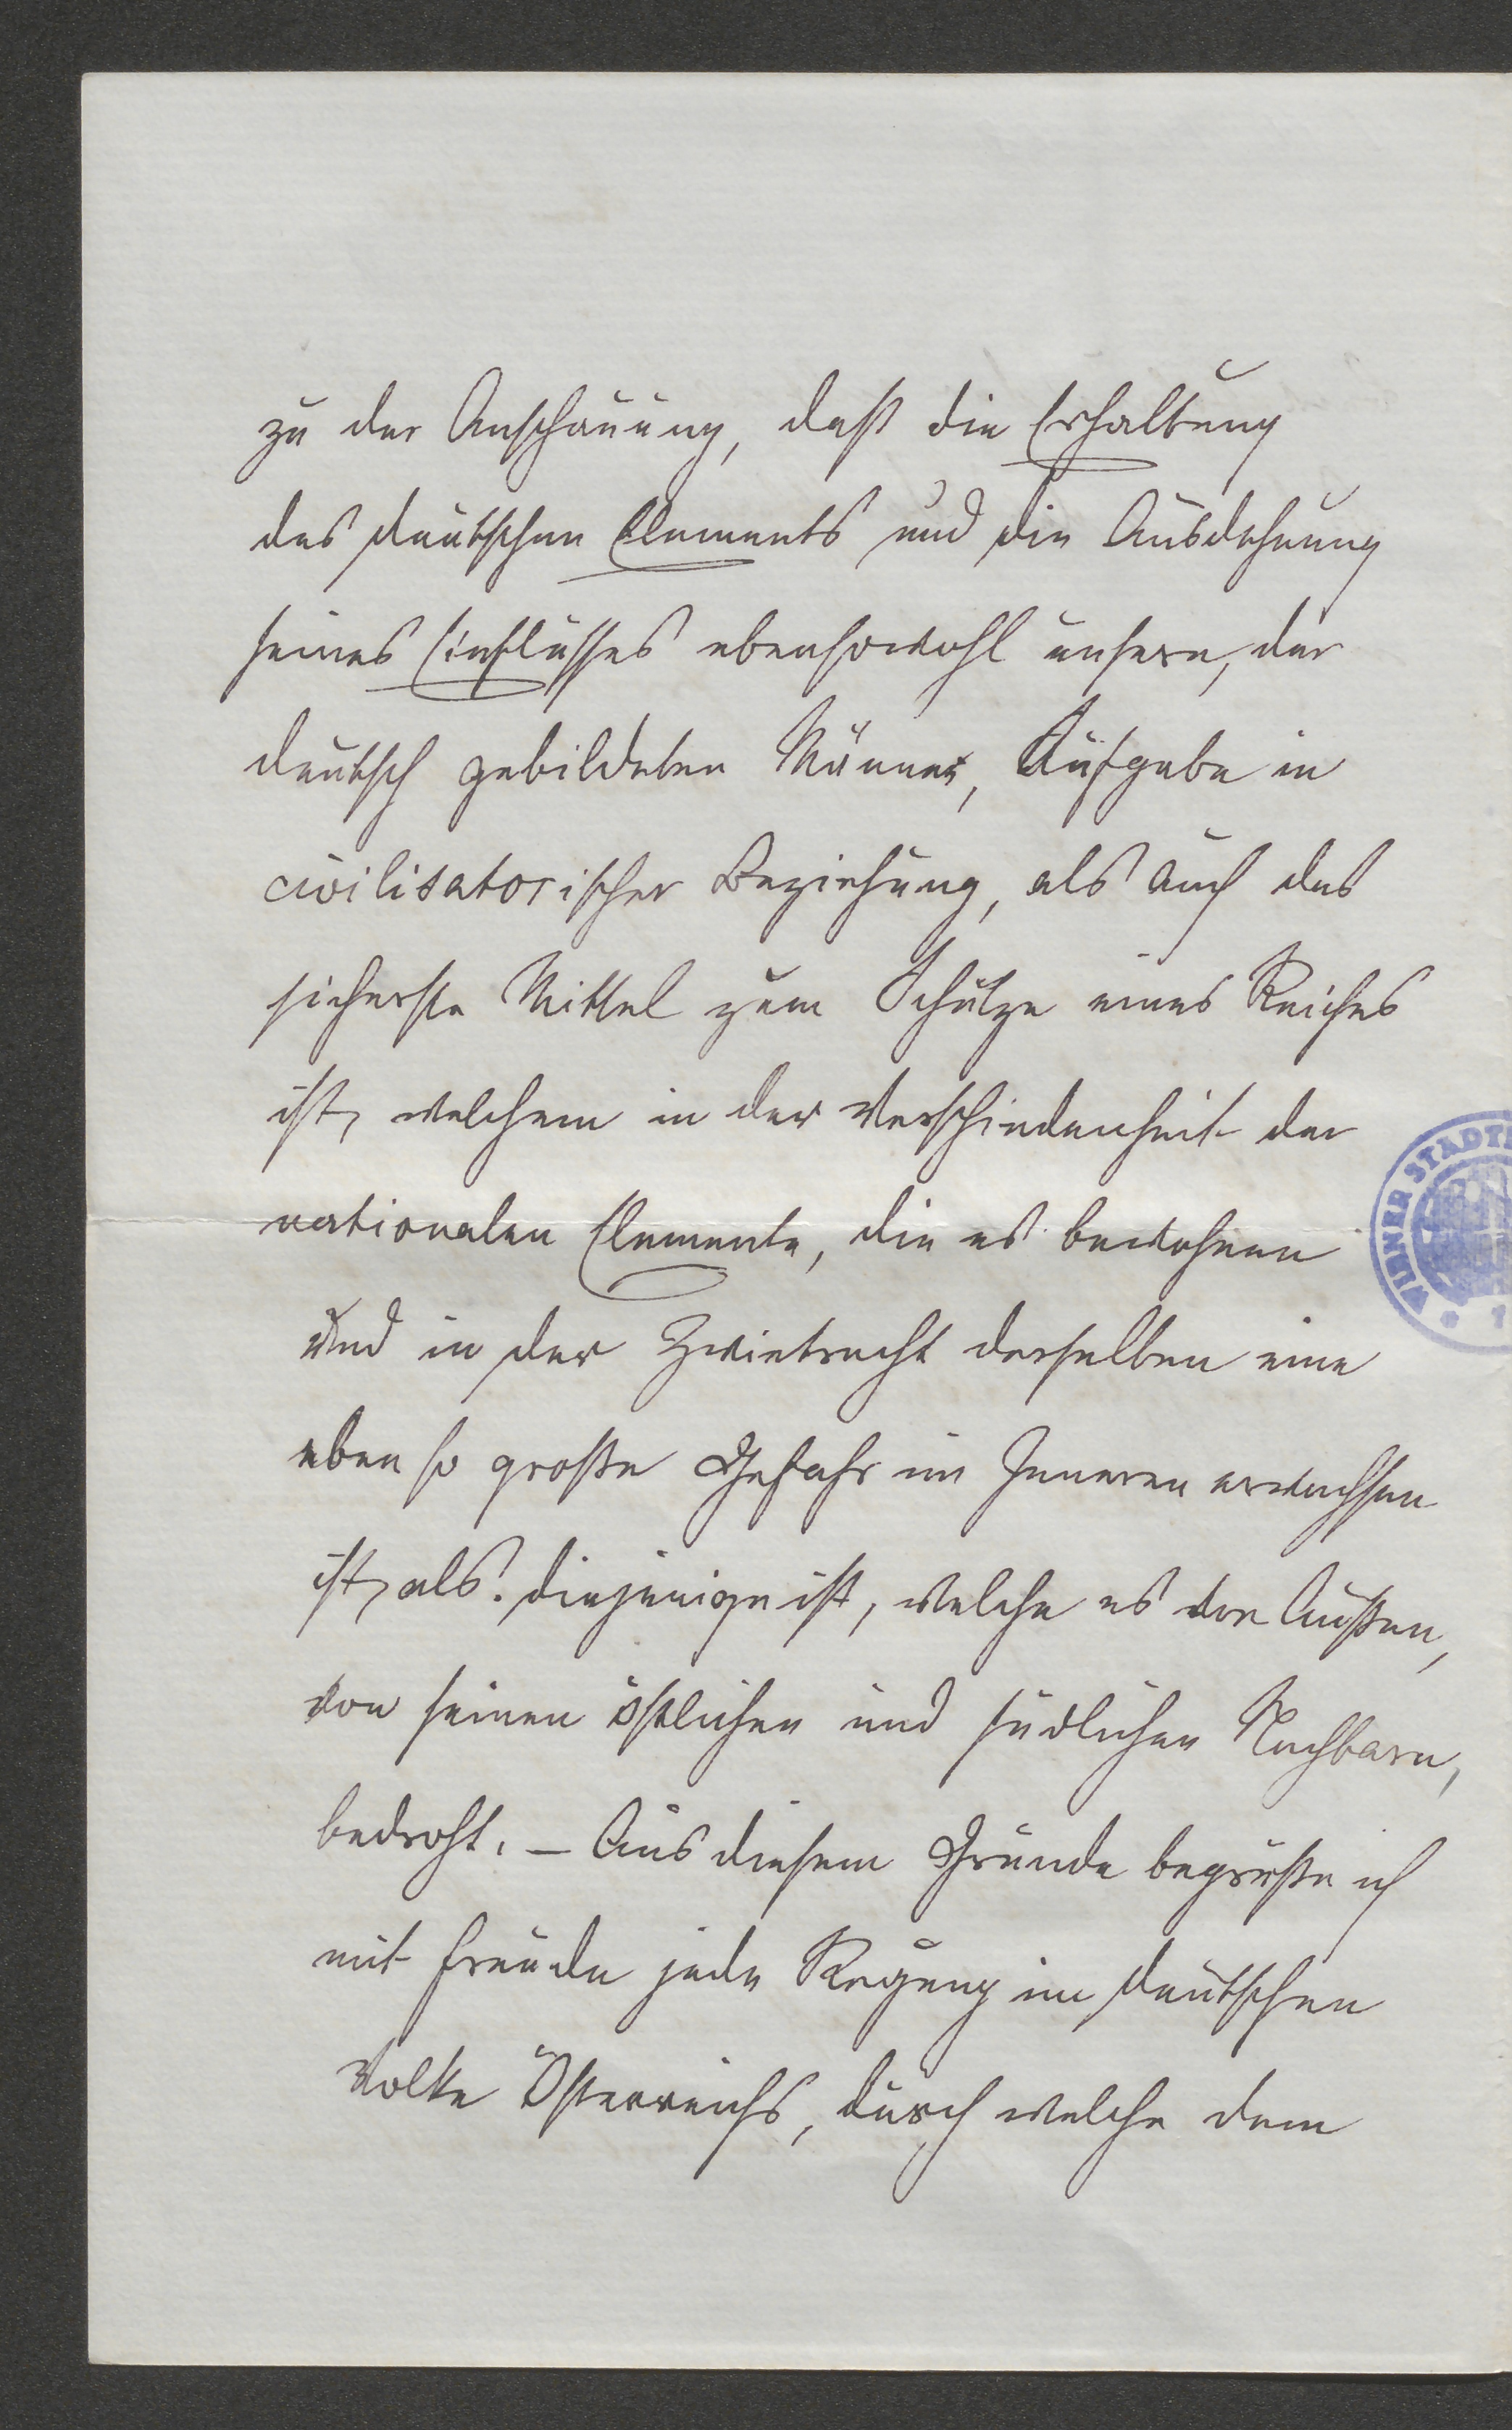 zu der Anschauung, daß die Erhaltung
des deutschen Elements und die Ausdehnung
seines Einflusses ebensowohl unsere, der
deutsch gebildeten Männer, Aufgabe in
civilisatorischer Beziehung, als auch das
sicherste Mittel zum Schutze eines Reiches
ist, welchem in der Verschiedenheit der
nationalen Elemente, die es bewohnen
und in der Zwietracht derselben eine
eben so große Gefahr im Inneren erwachsen
ist, als diejenige ist, welche es von Außen,
von seinen östlichen und südlichen Nachbarn,
bedroht. – Aus diesem Grunde begrüße ich
mit Freude jede Regung im deutschen
Volke Österreichs, durch welche dem
WIENER STADT